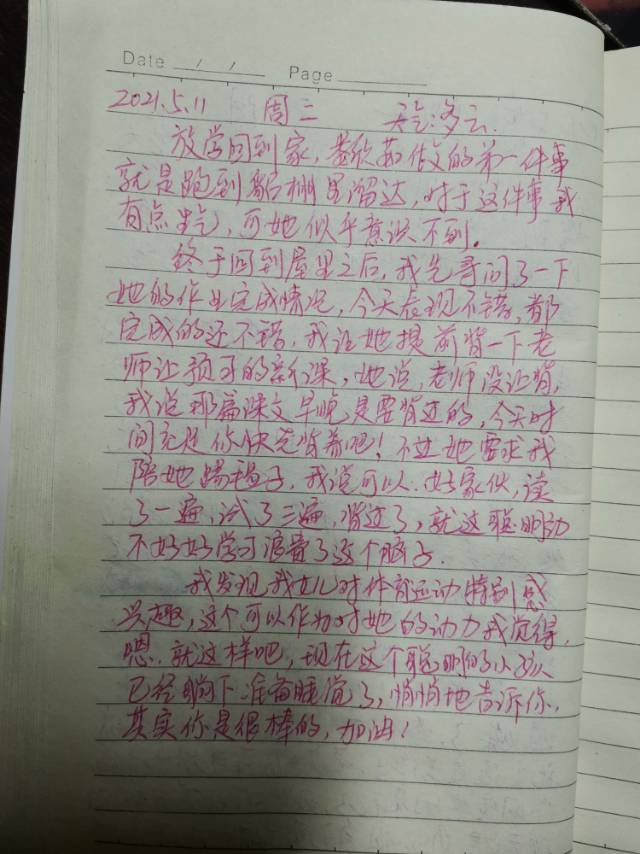 Date / / Page
2021.5.11 周二 天气:多云.
放学回到家,书作文的第一件事
就是跑到棚里溜达,对于这件事我
有点生气,可她似乎意识不到。
终于回到屋里之后,我先问了一下
她的作业完成情况,今天表现不错,都
完成的还不错,我让她提前背一下老
师让预习的新课,她说,老师没让背,
我说那篇课文早晚是要背过的,今天时
间充足你快先背着吧!不过她要求我
陪她踢毽子,我说可以.好家伙,读
了一遍,试了三遍,背过了,就这聪明劲
不好好学习浪费了这个脑子.
我发现我女儿对体育运动特别感
兴趣,这个可以作为对她的动力我觉得,
嗯.就这样吧,现在这个聪明的小孩
已经躺下准备睡觉了,悄悄地告诉你,
其实你是很棒的,加油!